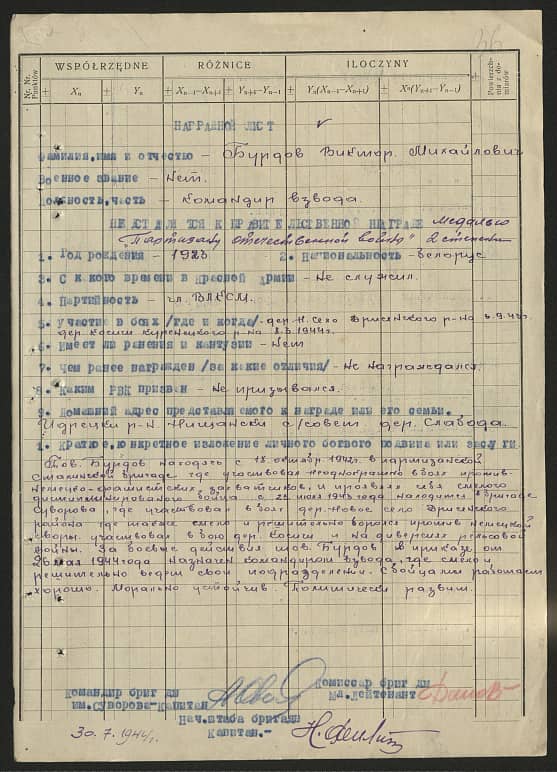 36
WSPÓŁRZĘDNE RÓŻNICE ILOCZYNY
Nr. Nr. Punktów
± Xn ± Yn ± Xn−1−Xn+1 ± Yn+1−Yn−1 ± Yn(Xn−1−Xn+1) ± Xn(Yn+1−Yn−1)
Powierzchnia z dominów
НАГРАДНОЙ ЛИСТ
Фамилия, имя и отчество – Бурдов Виктор Михайлович
Военное звание – Нет.
Должность, часть – командир взвода.
ПРЕДСТАВЛЯЕТСЯ К ПРАВИТЕЛЬСТВЕННОЙ НАГРАДЕ медалью
"Партизану отечественной войны" 2 степени
1. Год рождения – 1923 2. Национальность – белорус
3. С какого времени в Красной Армии – Не служил.
4. Партийность – чл. ВЛКСМ.
5. Участие в боях /где и когда/ – дер. Н. Село Дрисенского р-на 6.9.43г.
дер. Косиши Куренецкого р-на 8.3.1944г.
6. Имеет ли ранения и кантузии – Нет
7. Чем ранее награжден /за какие отличия/ – Не награждался.
8. Каким РВК призван – Не призывался.
9. Домашний адрес представляемого к награде или его семьи.
Идрецки р-н Нищански с/совет дер. Слабода.
1. Краткое, конкретное изложение личного боевого подвига или заслуги
Тов. Бурдов находясь с 15 октября 1942г в партизанской
Сталинской бригаде где участвовал неоднократно в боях против
немецко-фашистских захватчиков, и проявлял себя смелого
дисциплинированого бойца с 22 июля 1943 года находится в бригаде
Суворова, где участвовал в боях дер. Новое село Дрисенского
района где также смело и решительно боролся против немецкой
своры. участвовал в бою дер. Косиши и на диверсиях рельсовой
войны. За боевые действия тов. Бурдов в приказе от
20 мая 1944 года назначен командиром взвода, где смело и
решительно ведет свои подразделении. С бойцами работает
хорошо. Морально устойчив. Политически развит.
Командир бригады
им. Суворова-капитан
Комиссар бригады
Мл. Лейтенант
Нач. штаба бригады
капитан.-
30.7.1944г.